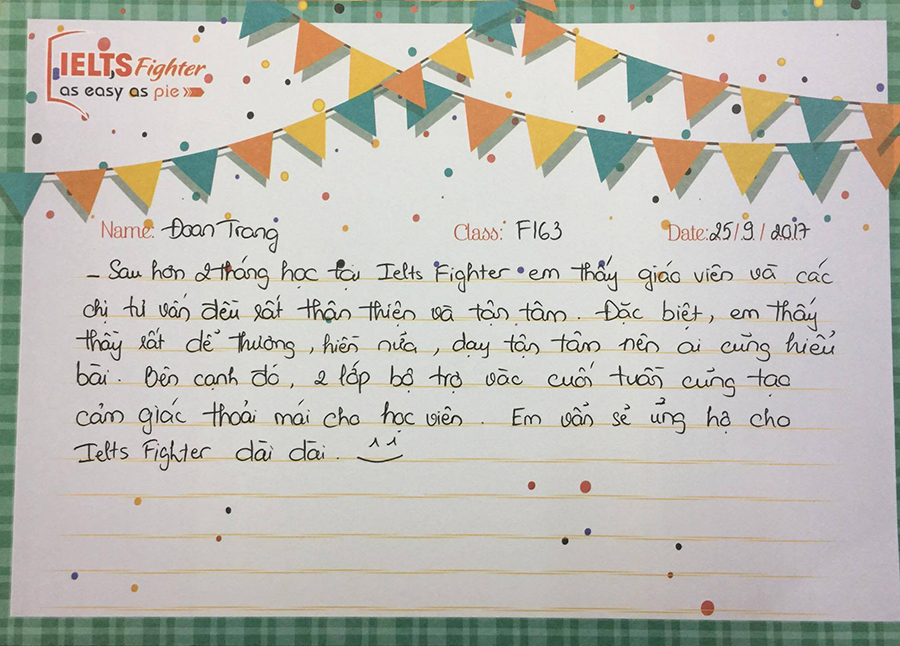 IELTS Fighter
as easy as pie
Name: Đoan Trang Class: F163 Date: 25/9/2017
- Sau hơn 2 tháng học tại Ielts Fighter em thấy giáo viên và các
chị tư vấn đều rất thân thiện và tận tâm. Đặc biệt, em thấy
thầy rất dể thương, hiền nữa, dạy tận tâm nên ai cũng hiểu
bài. Bên cạnh đó, 2 lớp bổ trợ vào cuối tuần cũng tạo
cảm giác thoải mái cho học viên. Em vẩn sẻ ủng hộ cho
Ielts Fighter dài dài.